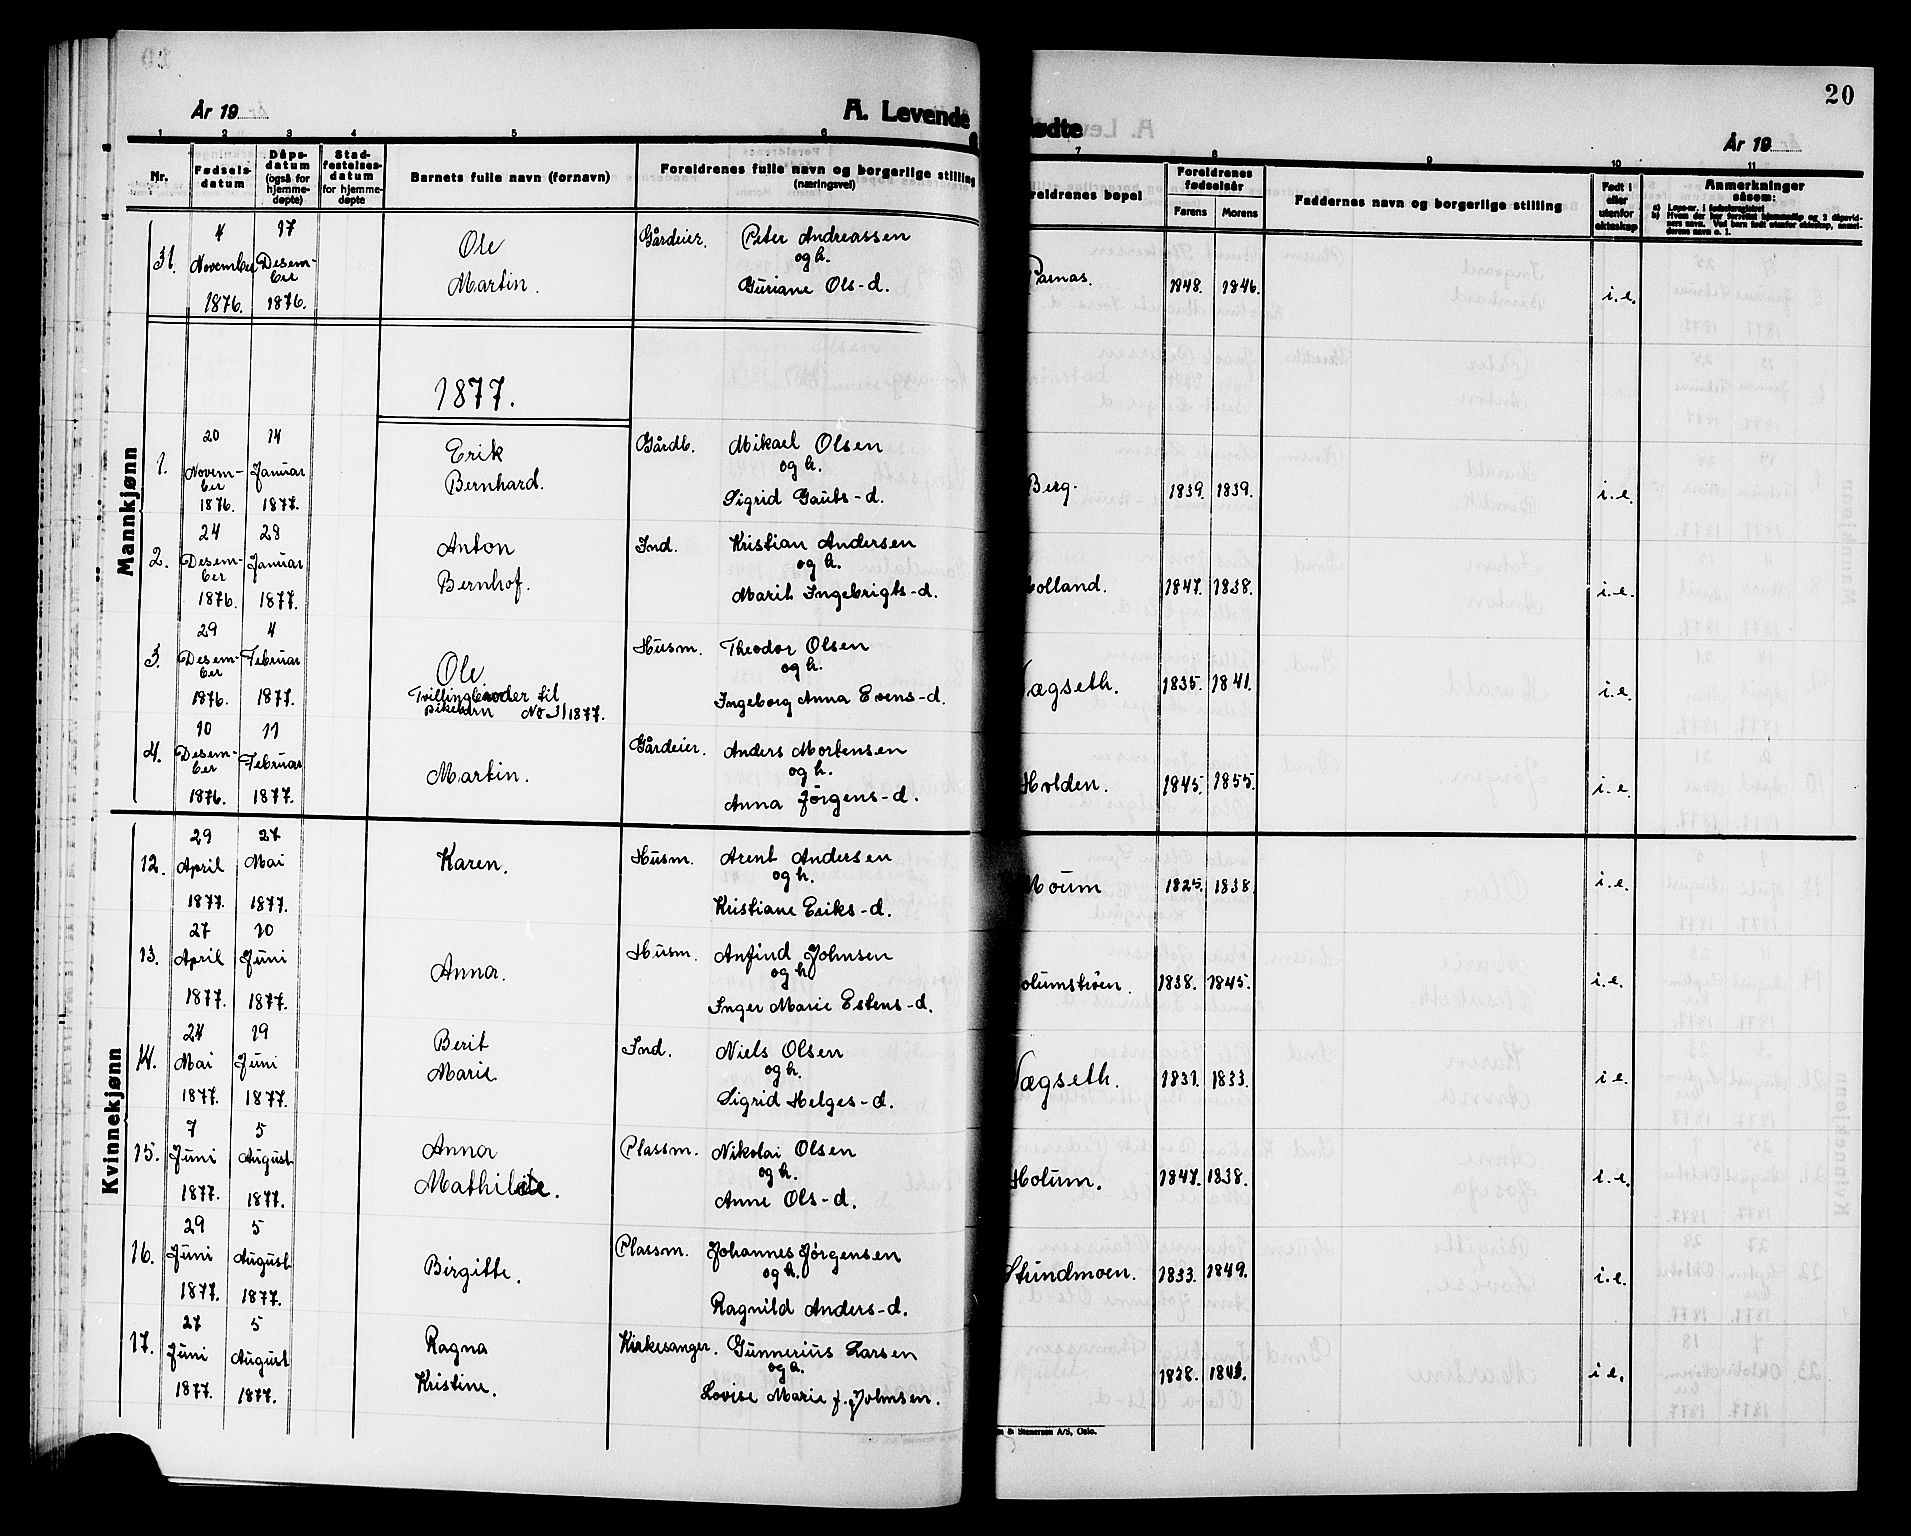 20
År 19
A. Levende
fødte
År 19
1 2 3 4 5 6 7 8 9 10 11
Nr.
Fødsels-
datum
Dåps-
datum
(også for
hjemme-
døpte)
Stad-
festelses-
datum
for hjemme-
døpte
Barnets fulle navn (fornavn)
Foreldrenes fulle navn og borgerlige stilling
(næringsvei)
oreldrenes bopel
Foreldrenes
fødselsår
Farens
Morens
Faddernes navn og borgerlige stilling
Født i
eller
utenfor
ekteskap
Anmerkninger
såsom:
Mannkjønn
31. 4 November 1876. 17 Desem-ber 1876. Ole Martin. Gårdeier. Peter Andreassen og h. Guriane Ols-d. Parnas. 1848. 1846. i.e.
1877.
1. 20 Novem-ber 1876. 14 Januar 1877. Erik Bernhard. Gårdb. Mikael Olsen og h. Sigrid Gauts-d. Berg. 1839. 1839. i.e.
2. 24 Desem-ber 1876. 28 Januar 1877. Anton Bernhof. Ind. Kristian Andersen og h. Marit Ingebrigts-d. Holland. 1847. 1838. i.e.
3. 29 Desem-ber 1876. 4 Februar 1877. Ole. Tvillingbroder til Pikebarn No 3/1877. Husm. Theodor Olsen og h. Ingeborg Anna Evens-d. Vægseth. 1835. 1841. i.e.
4. 10 Desem-ber 1876. 11 Februar 1877. Martin. Gårdeier. Anders Mortensen og h. Anna Jørgens-d. Holden. 1845. 1855. i.e.
Kvinnekjønn
12. 29 April 1877. 27 Mai 1877. Karen. Husm. Arent Andersen og h. Kristiane Eriks-d. Moum 1825. 1838. i.e.
13. 27 April 1877. 10 Juni 1877. Anna. Husm. Anfind Johnsen og h. Inger Marie Estens-d. olumstrøen. 1838. 1845. i.e.
14. 24 Mai 1877. 19 Juni 1877. Berit Marie Ind. Niels Olsen og h. Sigrid Helges-d. Vægseth. 1831. 1833. i.e.
15. 7 Juni 1877. 5 August 1877. Anna Mathilde. Plassm. Nikolai Olsen og h. Anne Ols-d. Holum. 1847. 1838. i.e.
16. 29 Juni 1877. 5 August 1877. Birgitte. Plassm. Johannes Jørgensen og h. Ragnild Anders-d. Stundmoen. 1833. 1849. i.e.
17. 27 Juni 1877. 5 August 1877. Ragna Kristine. Kirkesanger. Gunnerius Larsen og h. Lovise Marie f. Johnsen. 1838. i.e.
& Stenersen A/S, Oslo.